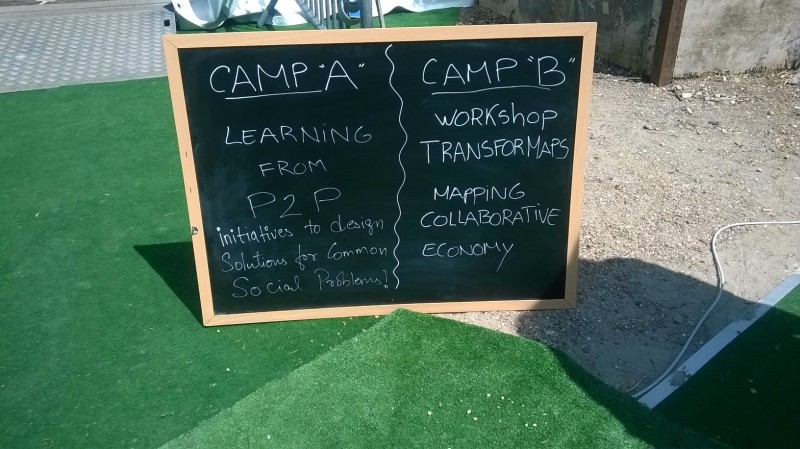 CAMP "A"
LEARNING
FROM
P2P
initiatives to design
Solutions for Common
Social Problems!
CAMP "B"
WORKSHOP
TRANSFORMAPS
MAPPING
COLLABORATIVE
ECONOMY